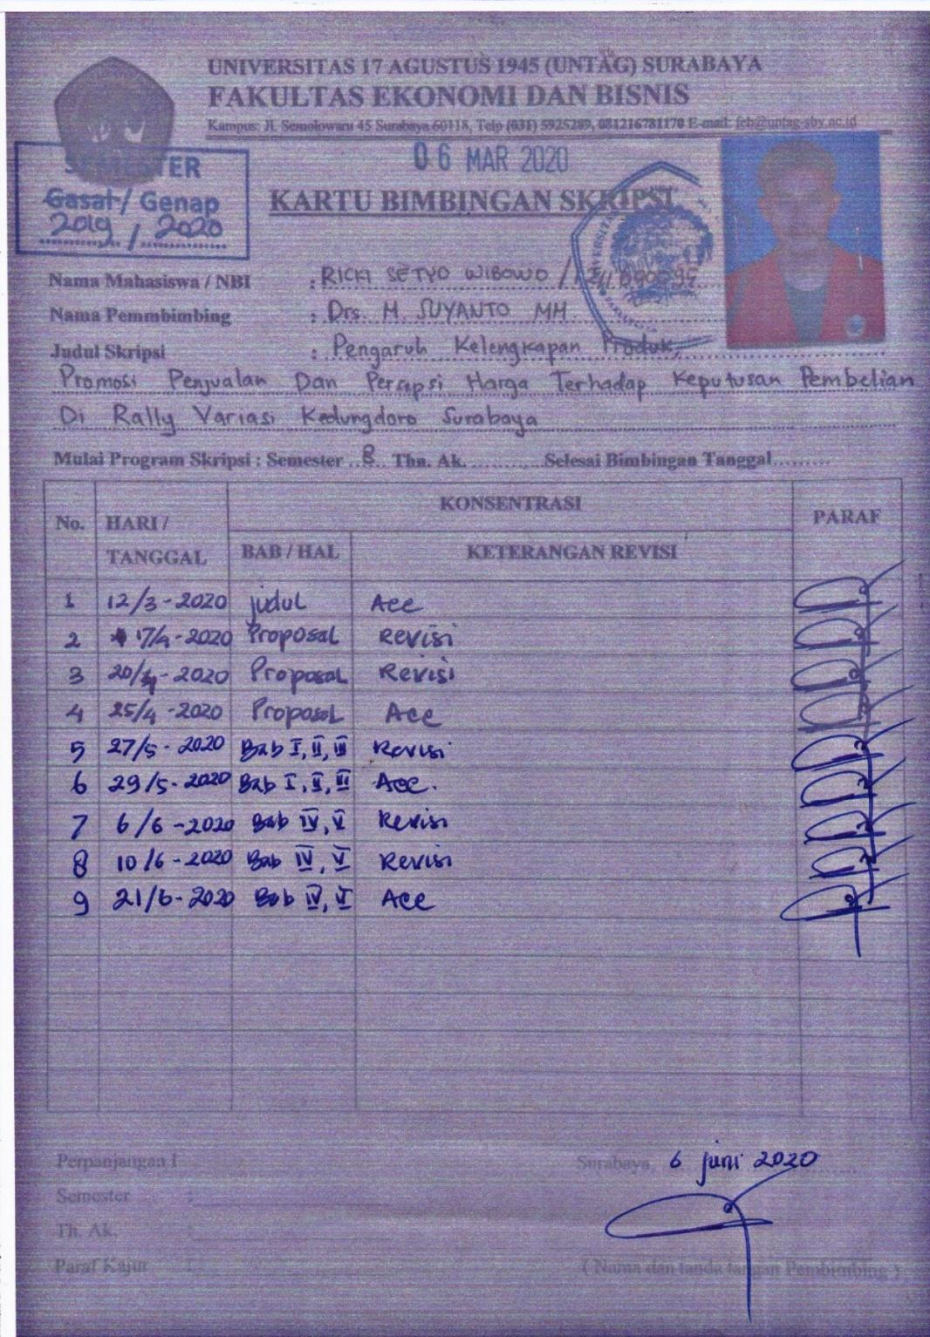 UNIVERSITAS 17 AGUSTUS 1945 (UNTAG) SURABAYA
FAKULTAS EKONOMI DAN BISNIS
Kampus: Jl. Semolowaru 45 Surabaya 60118, Telp (031) 5925289, 081216781170 E-mail: feb@untag-sby.ac.id
06 MAR 2020
SEMESTER
Gasal / Genap
2019 / 2020
KARTU BIMBINGAN SKRIPSI
Nama Mahasiswa / NBI : RICKI SETYO WIBOWO /
Nama Pemmbimbing : Drs. M. SUYANTO MM
Judul Skripsi : Pengaruh Kelengkapan Produk,
Promosi Penjualan Dan Persepsi Harga Terhadap Keputusan Pembelian
Di Rally Variasi Kedungdoro Surabaya
Mulai Program Skripsi : Semester ..8.. Thn. Ak. ............ Selesai Bimbingan Tanggal.........
No. HARI / TANGGAL KONSENTRASI PARAF
BAB / HAL KETERANGAN REVISI
1 12/3-2020 judul Acc
2 17/4-2020 Proposal Revisi
3 20/4-2020 Proposal Revisi
4 25/4-2020 Proposal Acc
5 27/5-2020 Bab I, II, III Revisi
6 29/5-2020 Bab I, II, III Acc.
7 6/6-2020 Bab IV, V Revisi
8 10/6-2020 Bab IV, V Revisi
9 21/6-2020 Bab IV, V Acc
Perpanjangan I
Surabaya, 6 juni 2020
Semester :
Th. Ak. :
Paraf Kajur :
( Nama dan tanda tangan Pembimbing )